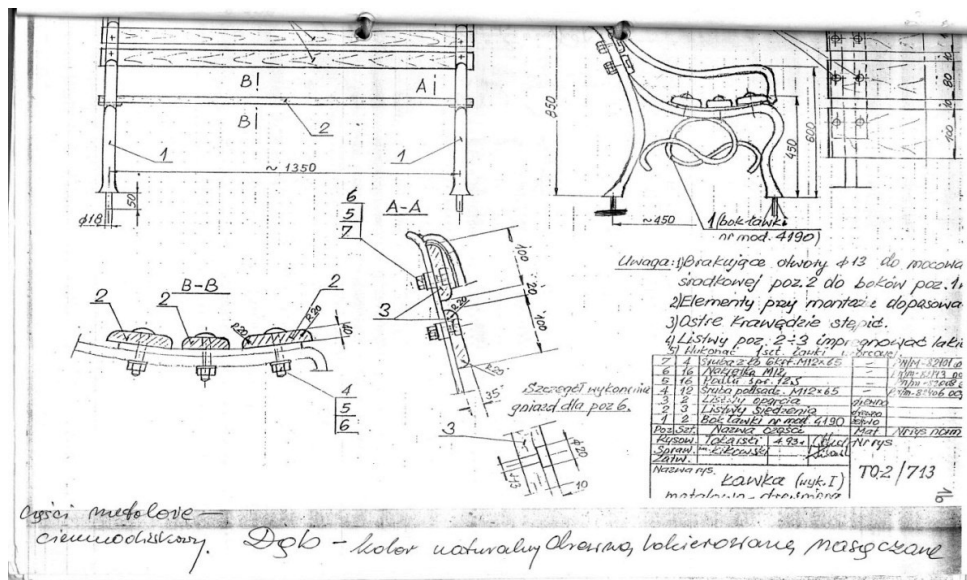 B
A
B
2
1
1
~1350
50
ϕ18
850
600
450
~450
1 (bok ławki
nr mod. 4190)
10
80
100
6
5
7
A-A
100
20
100
3
R20
35
B-B
2
2
2
R20
R20
4
5
6
Szczegół wykonania
gniazd dla poz 6.
3
ϕ20
ϕ13
10
Uwaga: 1) Brakujące otwory ϕ13 do mocowa
środkowej poz. 2 do boków poz. 1
2) Elementy przy montażu dopasowa
3) Ostre krawędzie stępić.
4) Listwy poz. 2÷3 impregnować laki
5) Wykonać 1 szt. ławki
7 4 Śruba z łb. 6kt. M12×65 –
6 16 Nakrętka M12 –
5 16 Podkł. spr. 12,5 –
4 12 Śruba podsadz. M12×65 –
3 2 Listwy oparcia drewno
2 3 Listwy siedzenia drewno
1 2 Bok ławki nr mod. 4190 żeliwo
Poz. Szt. Nazwa części Mat. Nr rys norm
Rysow. Tokarski 4.93r Nr rys
Spraw. Kikowski
Zatw.
Nazwa rys. Ławka (wyk. I) TO.2/713
metalowo-drewniana
16
części metalowe –
Dąb – kolor naturalny